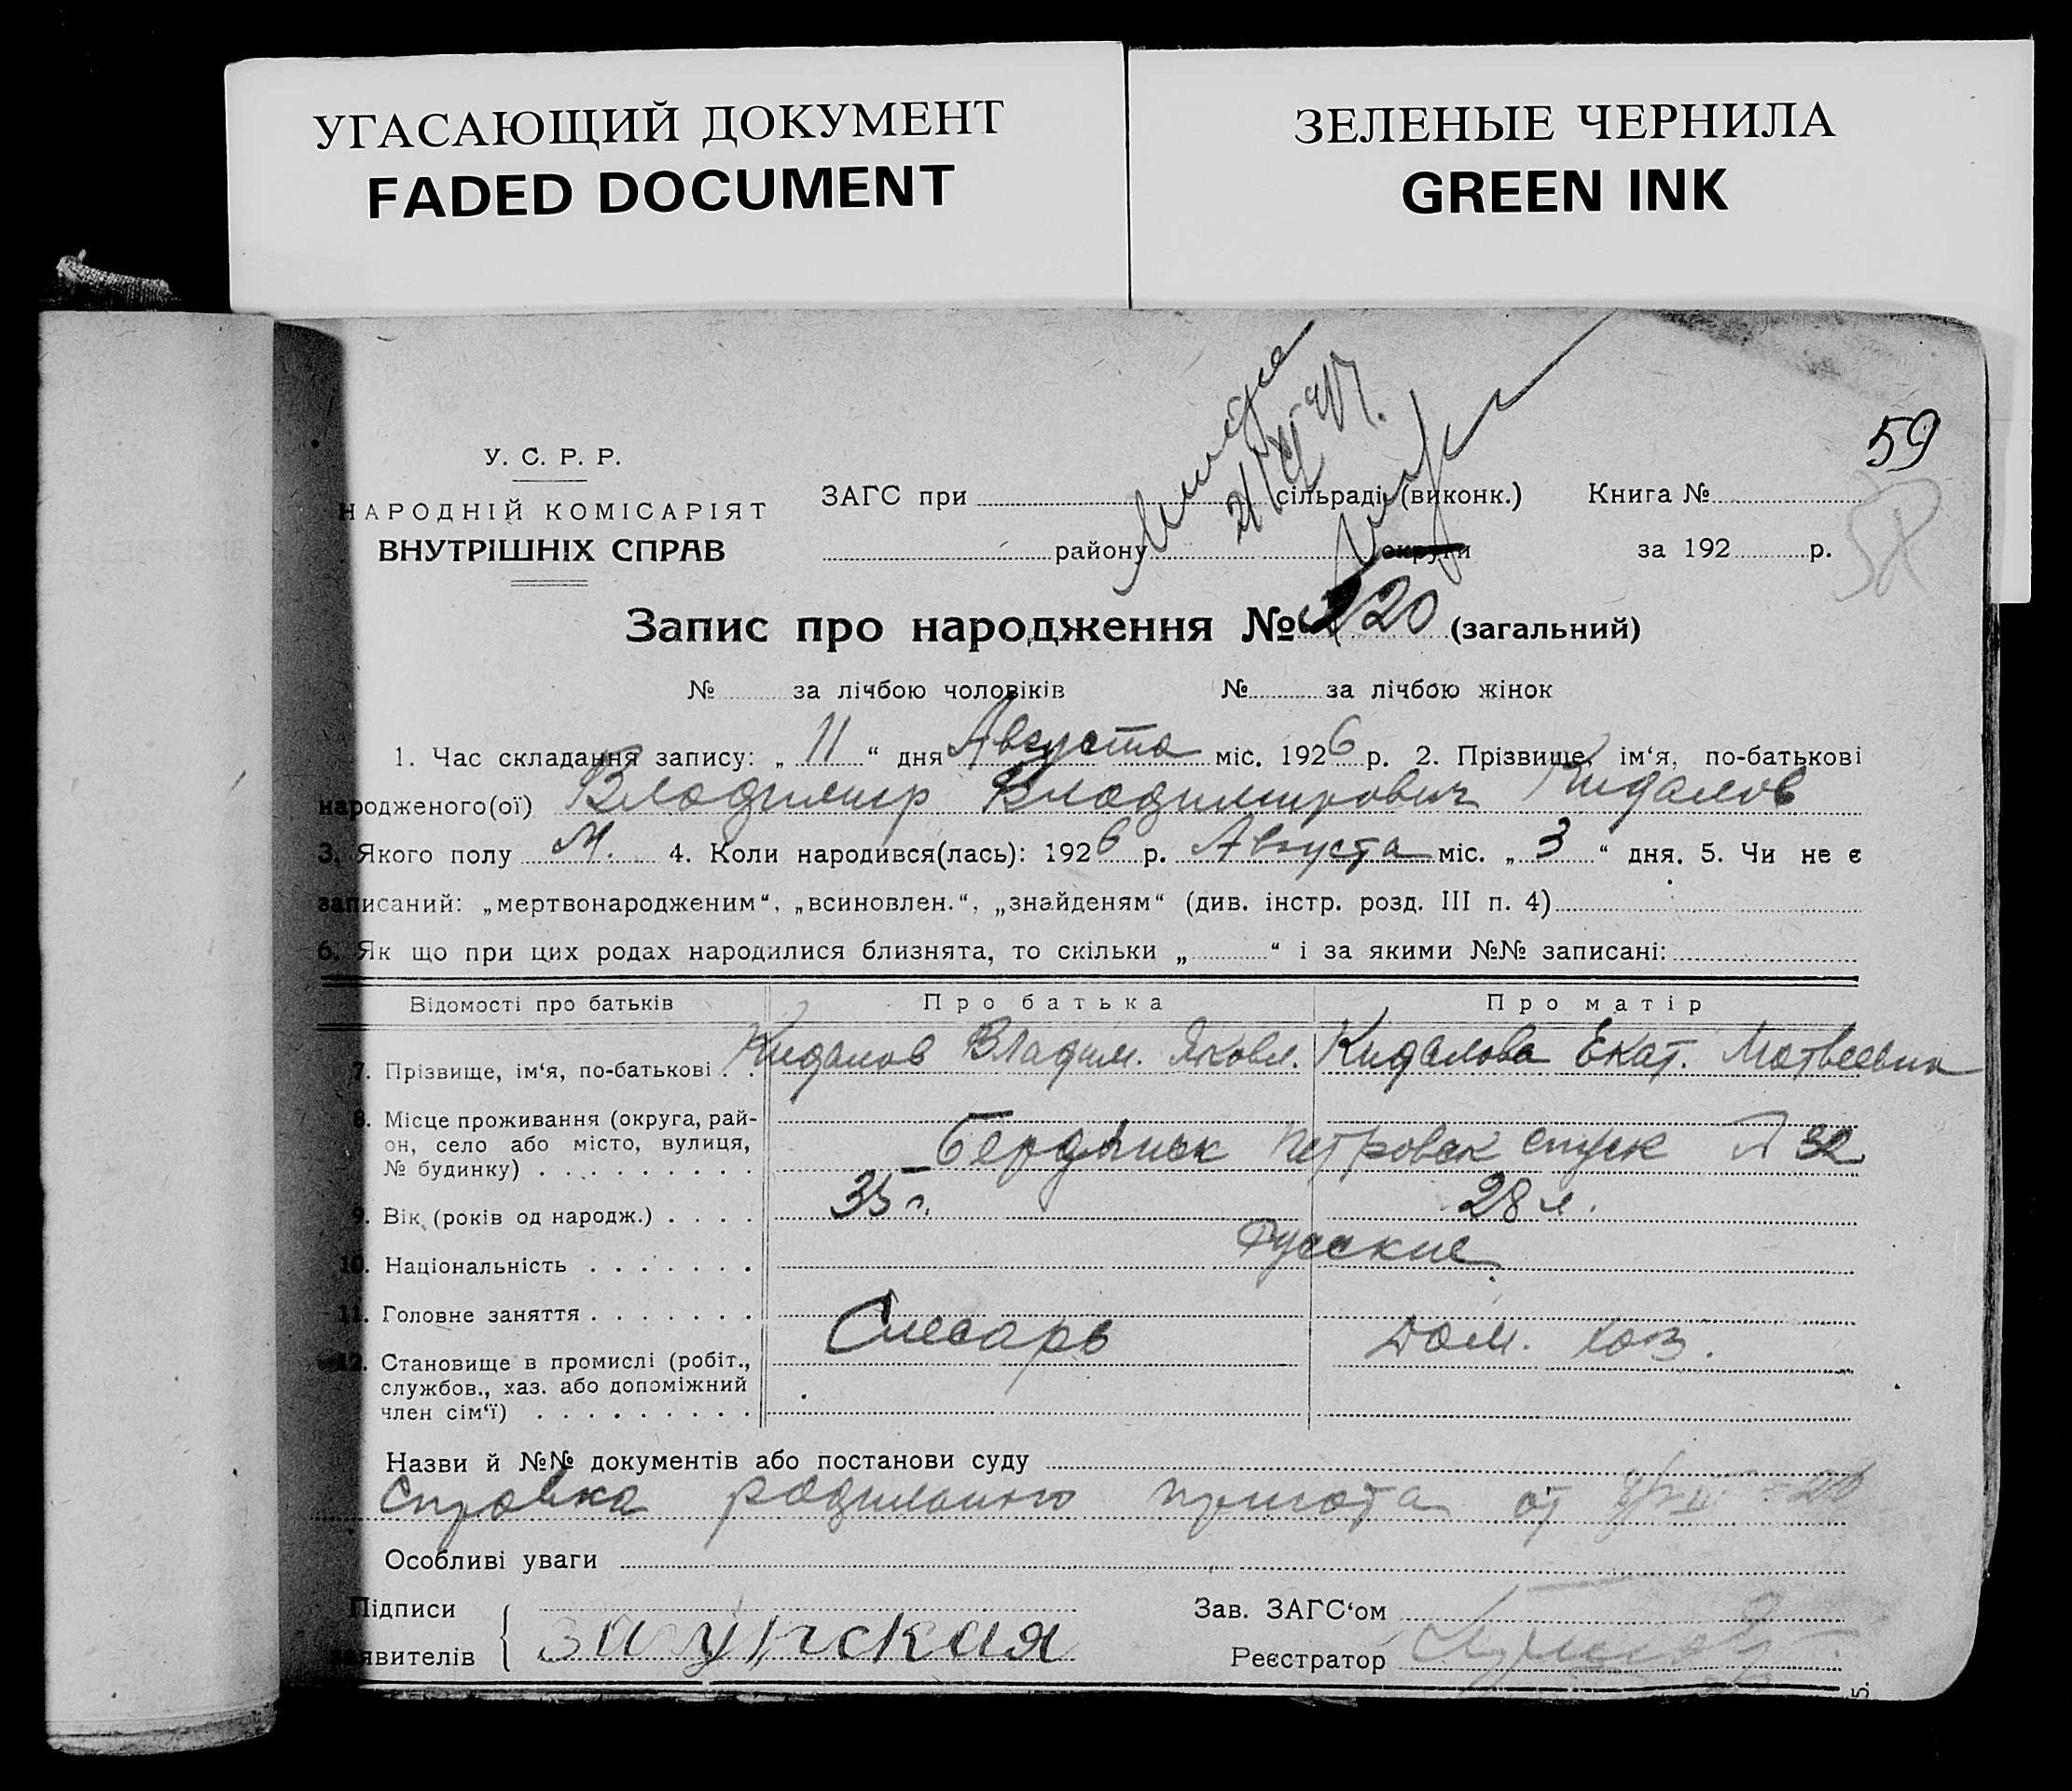 УГАСАЮЩИЙ ДОКУМЕНТ
FADED DOCUMENT
ЗЕЛЕНЫЕ ЧЕРНИЛА
GREEN INK
59
58
У. С. Р. Р.
НАРОДНІЙ КОМІСАРІЯТ
ВНУТРІШНІХ СПРАВ
ЗАГС при сільраді (виконк.) Книга №
району округи за 192 р.
Запис про народження № 220 (загальний)
№ за лічбою чоловіків № за лічбою жінок
1. Час складання запису: „ 11 “ дня Августа міс. 1926 р. 2. Прізвище, ім‘я, по-батькові
народженого(ої) Владимир Владимирович Кидалов
3. Якого полу М. 4. Коли народився(лась): 1926 р. Августа міс. „ 3 “ дня. 5. Чи не є
записаний: „мертвонародженим“, „всиновлен.“, „знайденям“ (див. інстр. розд. III п. 4)
6. Як що при цих родах народилися близнята, то скільки „ “ і за якими №№ записані:
Відомості про батьків Про батька Про матір
7. Прізвище, ім‘я, по-батькові . . Кидалов Владим. Яковл. Кидалова Екат. Матвеевна
8. Місце проживання (округа, рай-
он, село або місто, вулиця,
№ будинку) . . . . . . . . . Бердянск Петровск спуск 32
9. Вік (років од народж.) . . . . 35 л. 28 л.
10. Національність . . . . . . . Русские
11. Головне заняття . . . . . . . Слесарь Дом. хоз.
12. Становище в промислі (робіт.,
службов., хаз. або допоміжний
член сім‘ї) . . . . . . . . .
Назви й №№ документів або постанови суду
Справка родильного приюта от
Особливі уваги
Підписи
заявителів
Зав. ЗАГС‘ом
Реєстратор